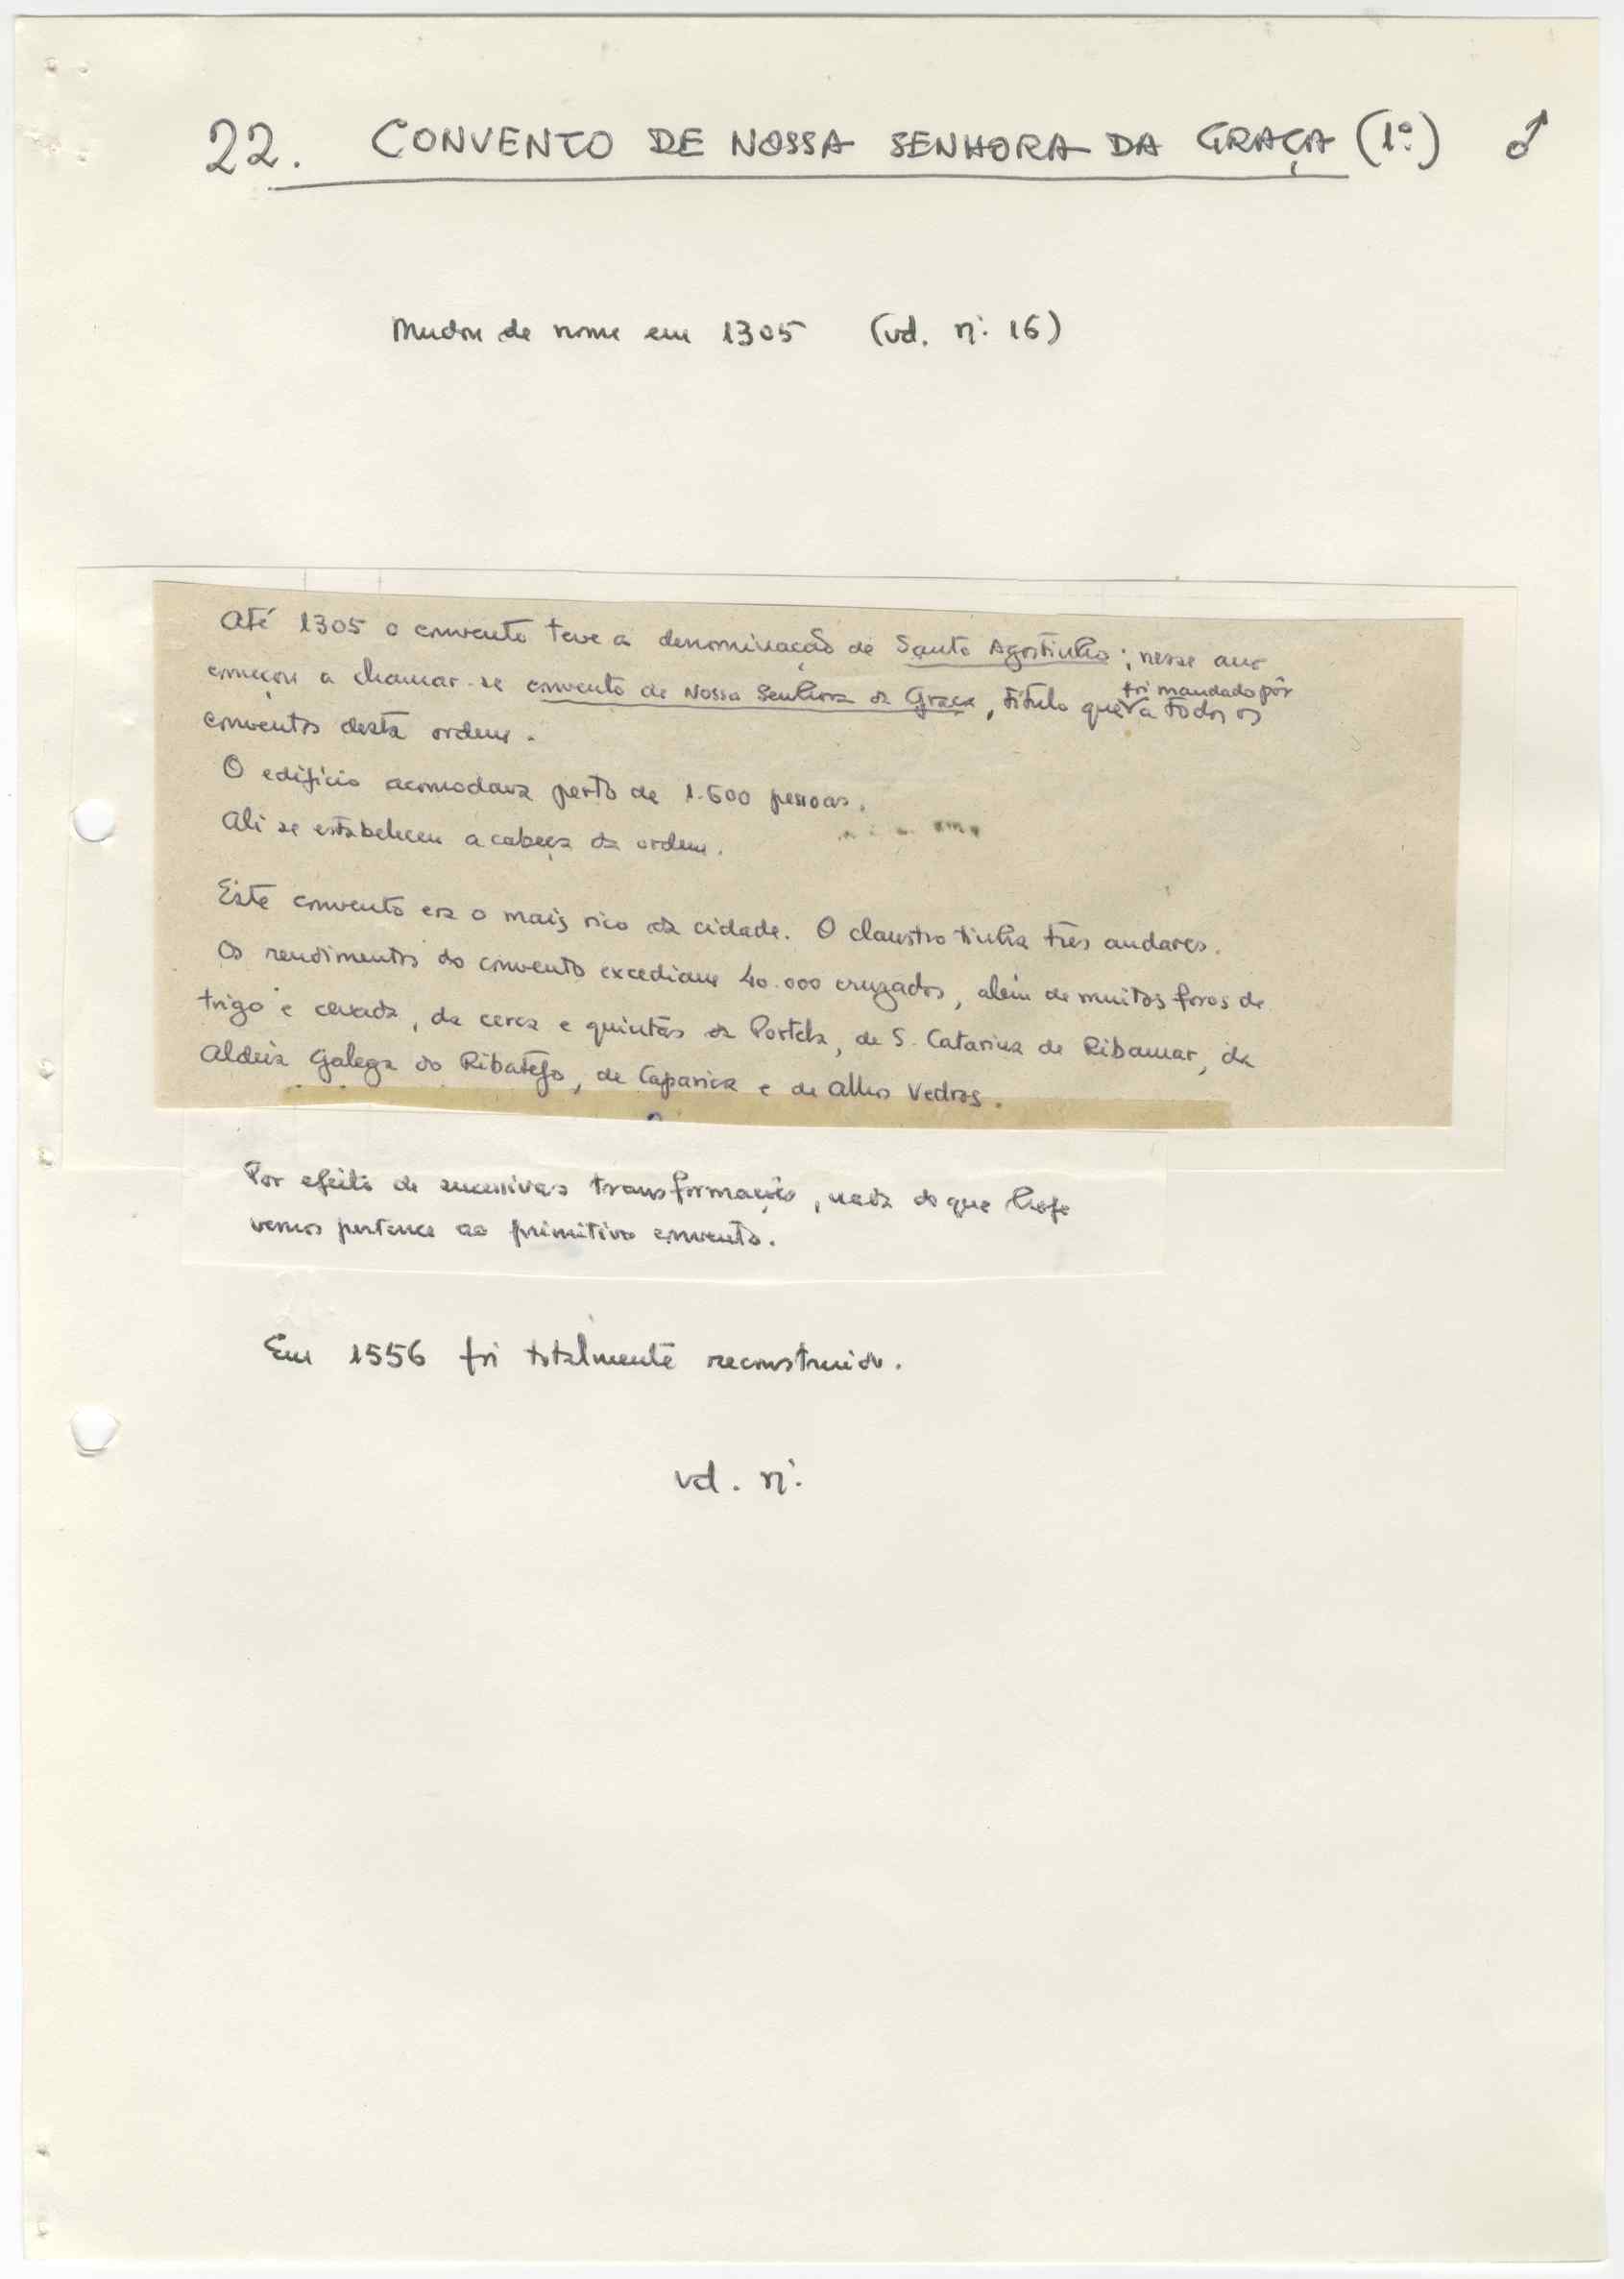 22. CONVENTO DE NOSSA SENHORA DA GRAÇA (1º) ♂
Mudou de nome em 1305 (vd. nº 16)
Até 1305 o convento teve a denominação de Santo Agostinho; nesse ano
começou a chamar-se convento de Nossa Senhora da Graça, título que foi mandado pôr a todos os
conventos desta ordem.
O edifício acomodava perto de 1.600 pessoas.
Ali se estabeleceu a cabeça da ordem.
Este convento era o mais rico da cidade. O claustro tinha três andares.
Os rendimentos do convento excediam 40.000 cruzados, além de muitos foros de
trigo e cevada, da cerca e quintas da Portela, de S. Catarina de Ribamar, da
Aldeia Galega do Ribatejo, de Caparica e de Alhos Vedros.
Por efeito de sucessivas transformações, nada do que hoje
vemos pertence ao primitivo convento.
Em 1556 foi totalmente reconstruido.
vd. nº